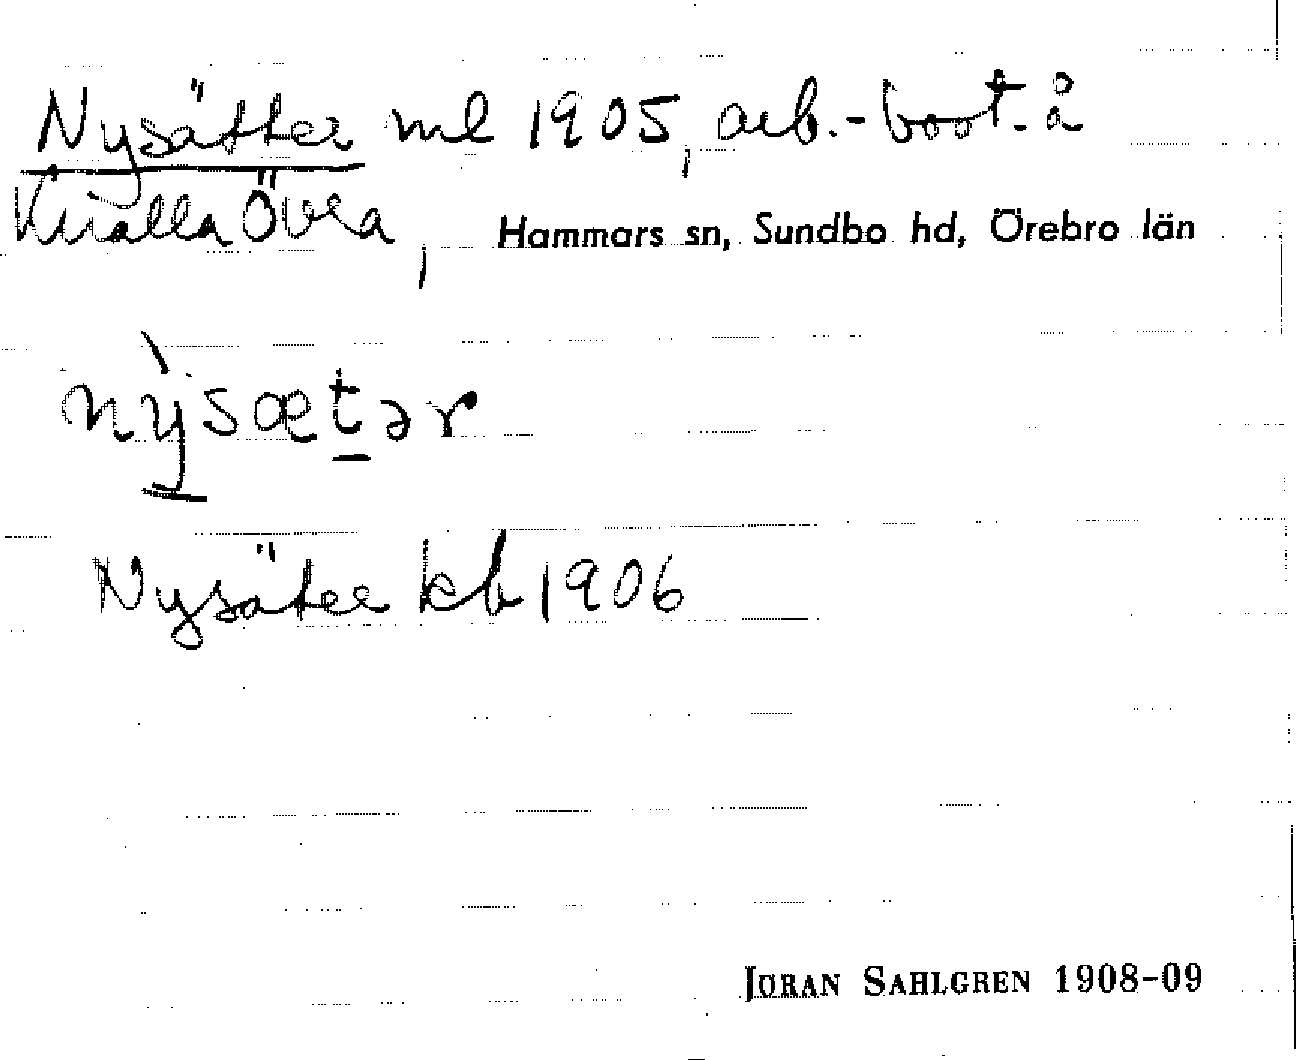 Nysätter ml 1905, arb.-bost. å
Kvialla Övra, Hammars sn, Sundbo hd, Örebro län
nỳsætər
Nysäter kb 1906
JÖRAN SAHLGREN 1908-09